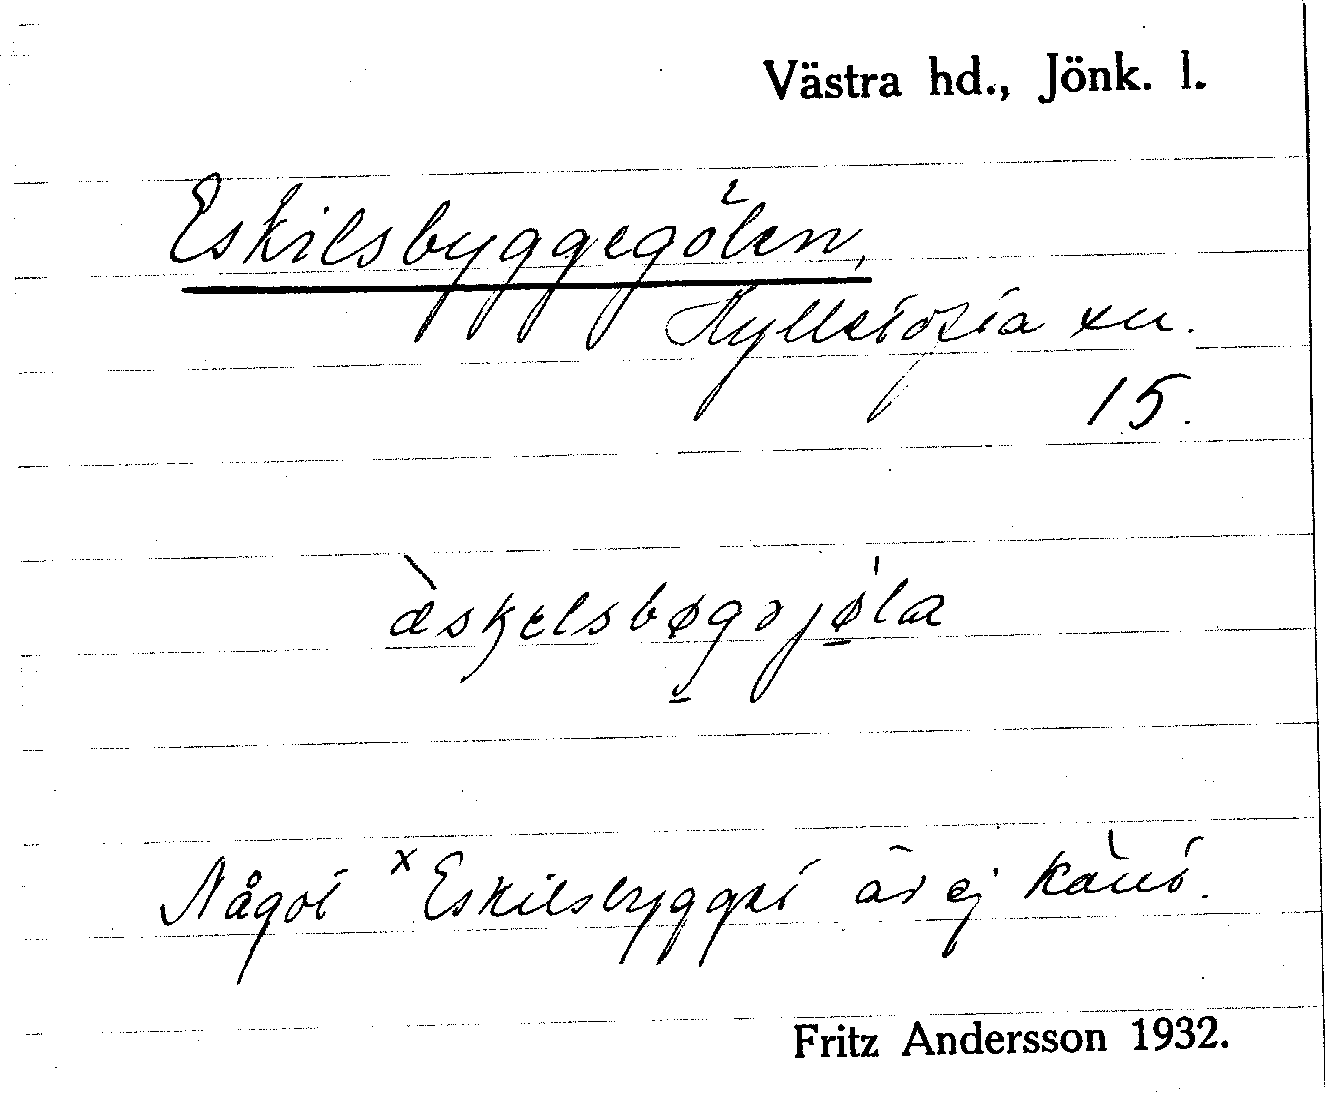 Västra hd., Jönk. l.
Eskilsbyggegölen,
Hyltetofta sn.
15.
Något ˣEskilsbygget är ej känt.
Fritz Andersson 1932.